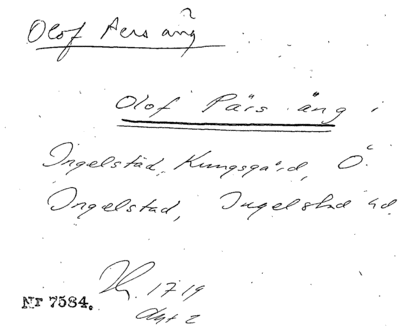 Olof Pers äng
Olof Pärs äng i
Ingelstad, Kungsgård, Ö.
Ingelstad, Ingelstad hd.
1719
Akt 2
Nr 7584.